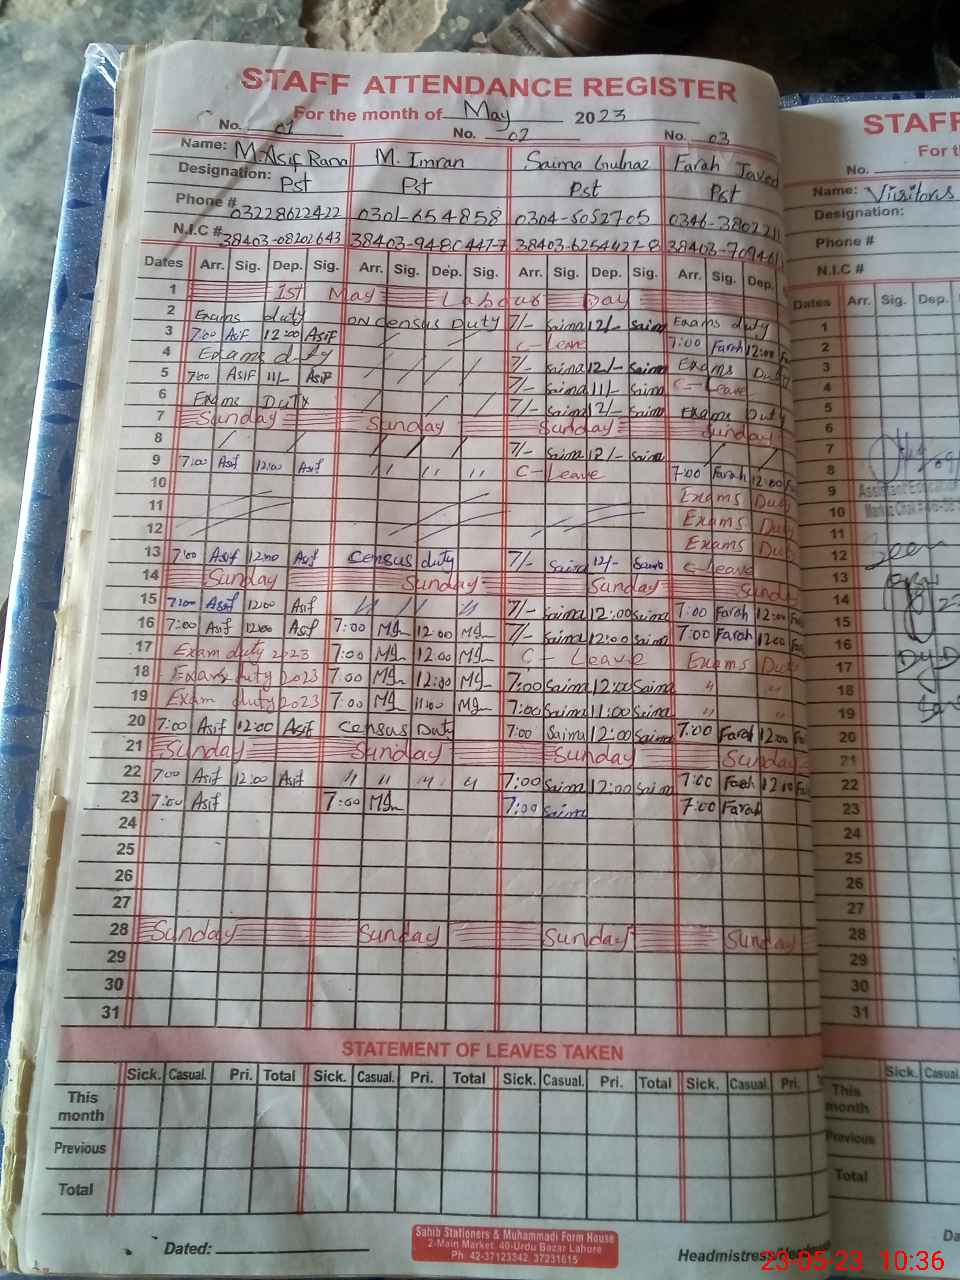 STAFF ATTENDANCE REGISTER
For the month of May 2023
No. 01 No. 02 No. 03
Name: M.Asif Rana M. Imran Saima Gulnaz Farah Javed
Designation: Pst Pst Pst Pst
Phone # 03228622422 0301-654858 0304-5052705 0346-3802211
N.I.C # 38403-08202643 38403-9480447-7 38403-6254427-8
Dates Arr. Sig. Dep. Sig. Arr. Sig. Dep. Sig. Arr. Sig. Dep. Sig. Arr. Sig. Dep.
1 1st May Labour Day
2 Exams duty ON Census Duty 7/- Saima 12/- Saima Exams duty
3 7:00 Asif 12:00 Asif C-Leave 7:00 Farah 12:00
4 Exams duty 7/- Saima 12/- Saima Exams Duty
5 7:00 Asif 11/- Asif 7/- Saima 11/- Saima C-Leave
6 Exams Duty 7/- Saima 12/- Saima Exams Duty
7 Sunday Sunday Sunday Sunday
8 7/- Saima 12/- Saima
9 7:00 Asif 12:00 Asif " " " " C-Leave 7:00 Farah 12:00
10 Exams Duty
11 Exams Duty
12 Exams Duty
13 7:00 Asif 12:00 Asif Census duty 7/- Saima 12/- Saima C-Leave
14 Sunday Sunday Sunday Sunday
15 7:00 Asif 12:00 Asif " " " " 7/- Saima 12:00 Saima 7:00 Farah 12:00
16 7:00 Asif 12:00 Asif 7:00 12:00 7/- Saima 12:00 Saima 7:00 Farah 12:00
17 Exam duty 2023 7:00 12:00 C-Leave Exams Duty
18 Exams duty 2023 7:00 12:00 7:00 Saima 12:00 Saima " "
19 Exam duty 2023 7:00 11:00 7:00 Saima 11:00 Saima " "
20 7:00 Asif 12:00 Asif Census Duty 7:00 Saima 12:00 Saima 7:00 Farah 12:00
21 Sunday Sunday Sunday Sunday
22 7:00 Asif 12:00 Asif " " " " 7:00 Saima 12:00 Saima 7:00 Farah
23 7:00 Asif 7:00 7:00 Saima 7:00 Farah
24
25
26
27
28 Sunday Sunday Sunday Sunday
29
30
31
STATEMENT OF LEAVES TAKEN
Sick. Casual. Pri. Total Sick. Casual. Pri. Total Sick. Casual. Pri. Total Sick. Casual. Pri.
This month
Previous
Total
Dated:
Sahib Stationers & Muhammadi Form House
2-Main Market, 40-Urdu Bazar Lahore
Ph: 42-37123342, 37231615
Headmistress
No.
Name: Visitors
Designation:
Phone #
N.I.C #
Dates Arr. Sig. Dep.
1
2
3
4
5
6
7
8
9
10
11
12 Seen
13
14
15
16
17
18
19
20
21
22
23
24
25
26
27
28
29
30
31
Sick. Casual.
This month
Previous
Total
23-05-23 10:36